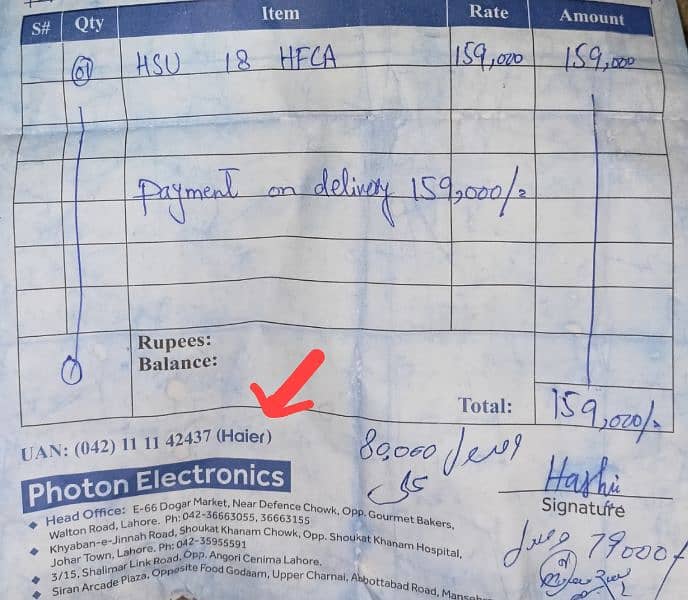 S# Qty Item Rate Amount
01 HSU 18 HFCA 159,000 159,000
Payment on delivery 159,000/=
Rupees:
Balance:
1
Total: 159,000/=
UAN: (042) 11 11 42437 (Haier)
80,000 وصول
Photon Electronics
Hashi
Signature
Head Office: E-66 Dogar Market, Near Defence Chowk, Opp. Gourmet Bakers,
Walton Road, Lahore. Ph:042-36663055, 36663155
Khyaban-e-Jinnah Road, Shoukat Khanam Chowk, Opp. Shoukat Khanam Hospital,
Johar Town, Lahore. Ph: 042-35955591
3/15, Shalimar Link Road, Opp. Angori Cenima Lahore.
Siran Arcade Plaza, Opposite Food Godaam, Upper Charnai, Abbottabad Road,
79000/ وصول